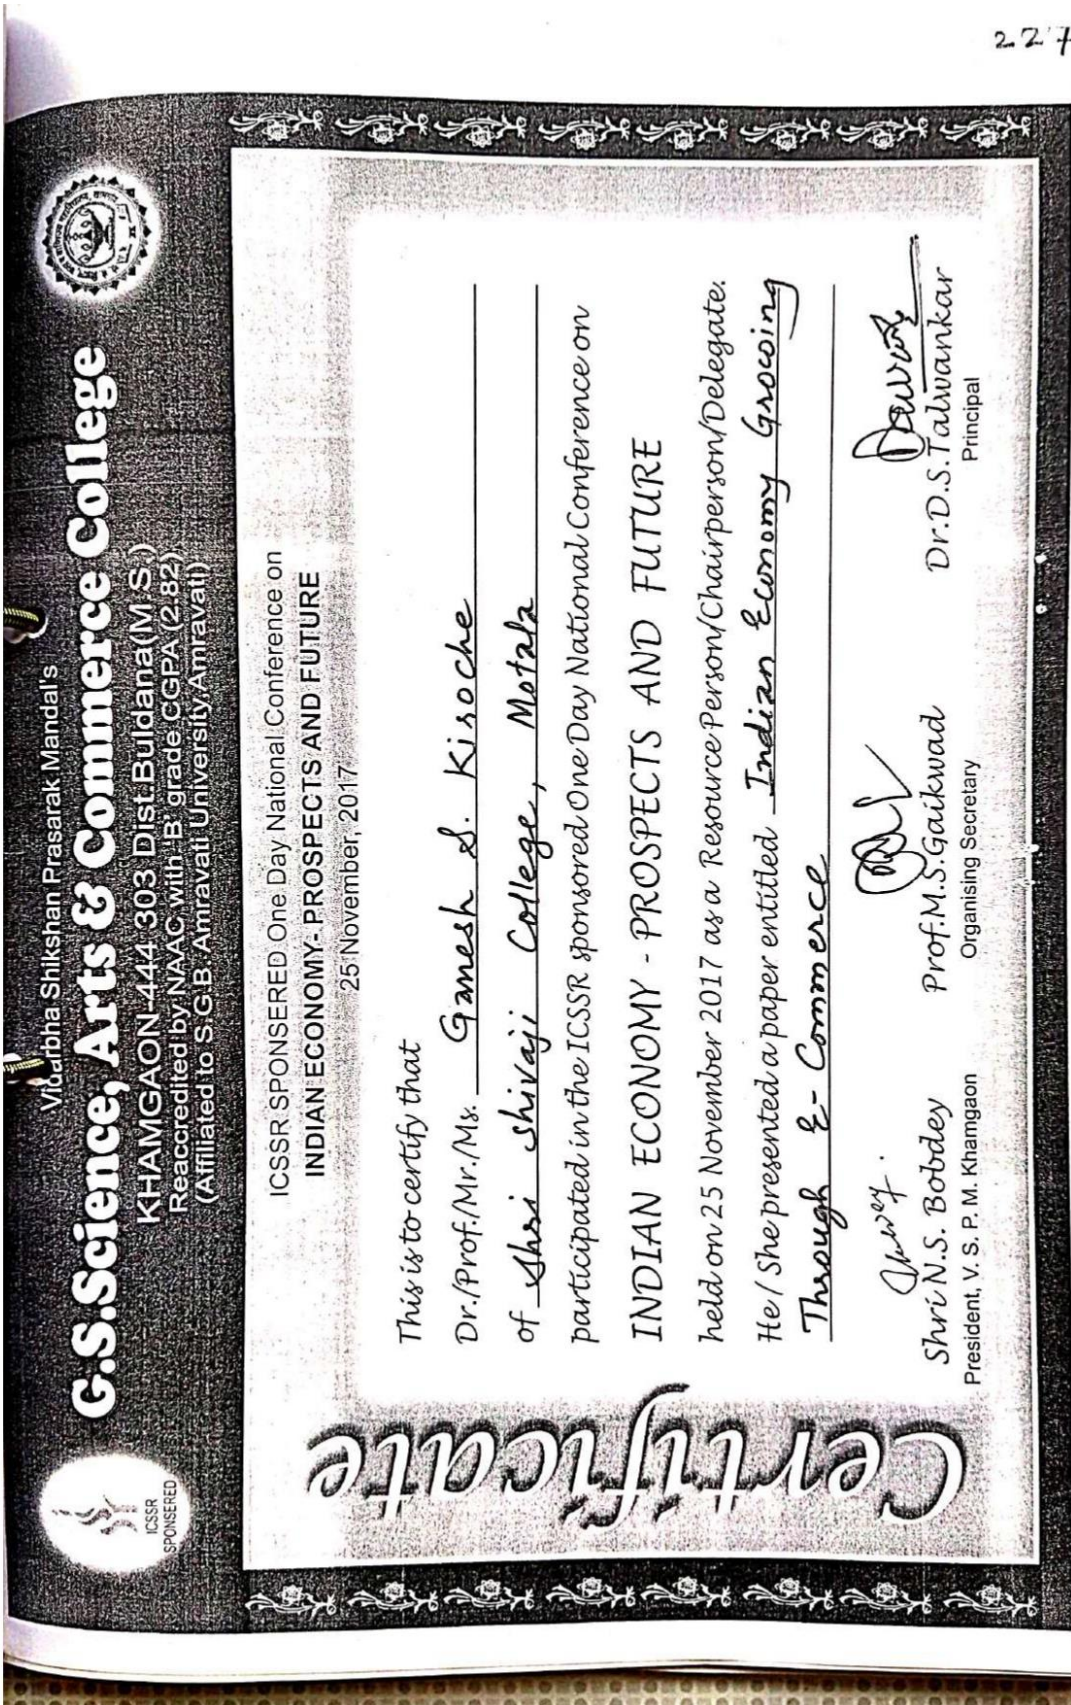 227
Vidarbha Shikshan Prasarak Mandal's
G.S.Science, Arts & Commerce College
KHAMGAON-444 303 Dist.Buldana(M S )
Reaccredited by NAAC with 'B' grade CGPA (2.82)
(Affiliated to S.G.B. Amravati University,Amravati)
ICSSR
SPONSERED
ICSSR SPONSERED One Day National Conference on
INDIAN ECONOMY- PROSPECTS AND FUTURE
25 November, 2017
Certificate
This is to certify that
Dr./Prof./Mr./Ms. Ganesh S. Kiroche
of Shri Shivaji College, Motala
participated in the ICSSR sponsored One Day National Conference on
INDIAN ECONOMY - PROSPECTS AND FUTURE
held on 25 November 2017 as a Resource Person/Chairperson/Delegate.
He / She presented a paper entitled Indian Economy Growing
Through E- Commerce
Shri N.S. Bobdey Prof.M.S.Gaikwad Dr.D.S.Talwankar
President, V. S. P. M. Khamgaon Organising Secretary Principal